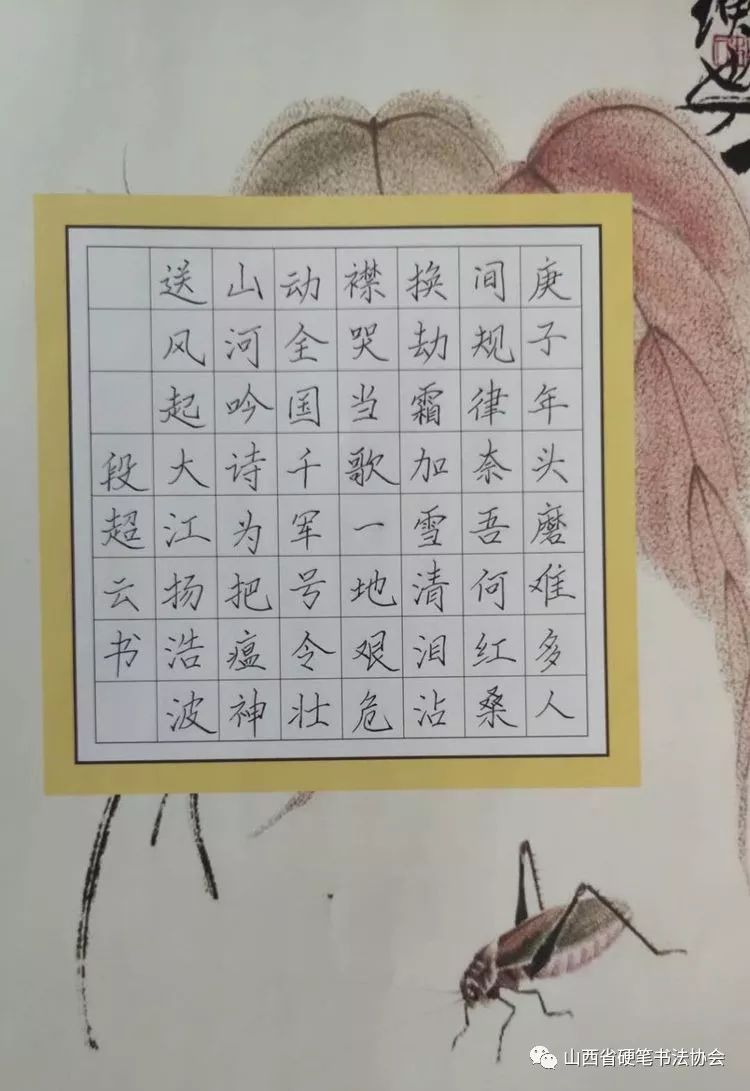 庚子年头磨难多人
间规律奈吾何红桑
换劫霜加雪清泪沾
襟哭当歌一地艰危
动全国千军号令壮
山河吟诗为把瘟神
送风起大江扬浩波
段超云书
山西省硬笔书法协会